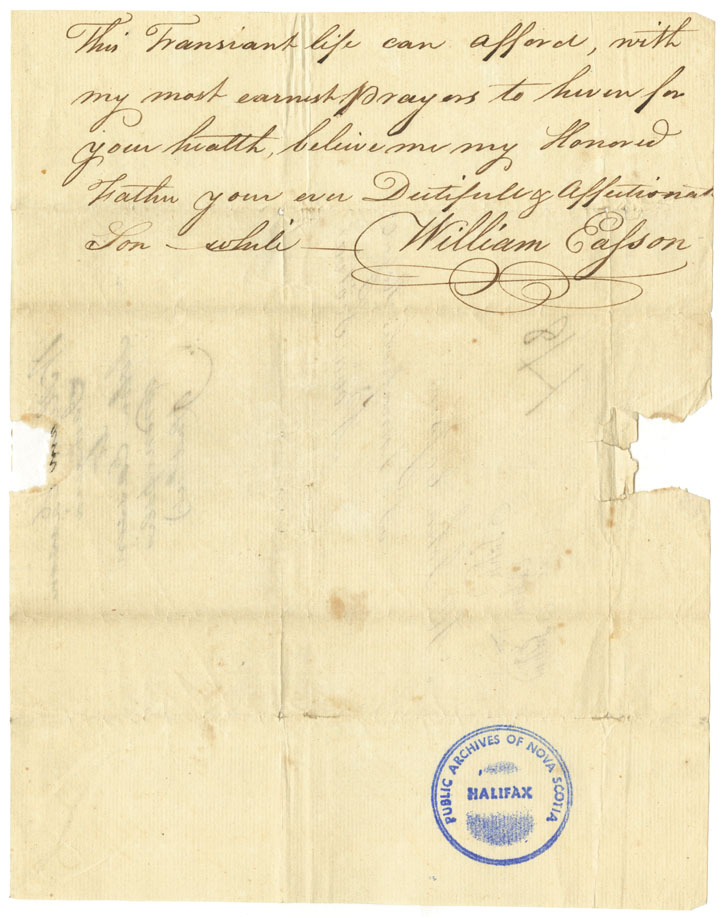 This Transiant life can afford, with
my most earnest prayers to heven for
your health, believe me my Honored
Father your ever Dutifull & Affectionate
Son — while — William Eaſson
PUBLIC ARCHIVES OF NOVA SCOTIA
HALIFAX